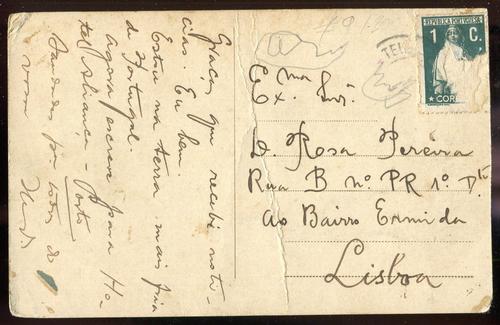 Graças, que recebi noti-
cias. Eu bem
Estou na terra mais fria
de Portugal.
Agora escreve para Ho-
tel Alliança - Porto
Saudades por todos do
REPUBLICA PORTUGUESA
1 C.
CORR
TEL
Exma
Ex. Snrª.
D. Rosa Pereira
Rua B nº. PR 1º. Dto
ao Bairro Ermida
Lisboa